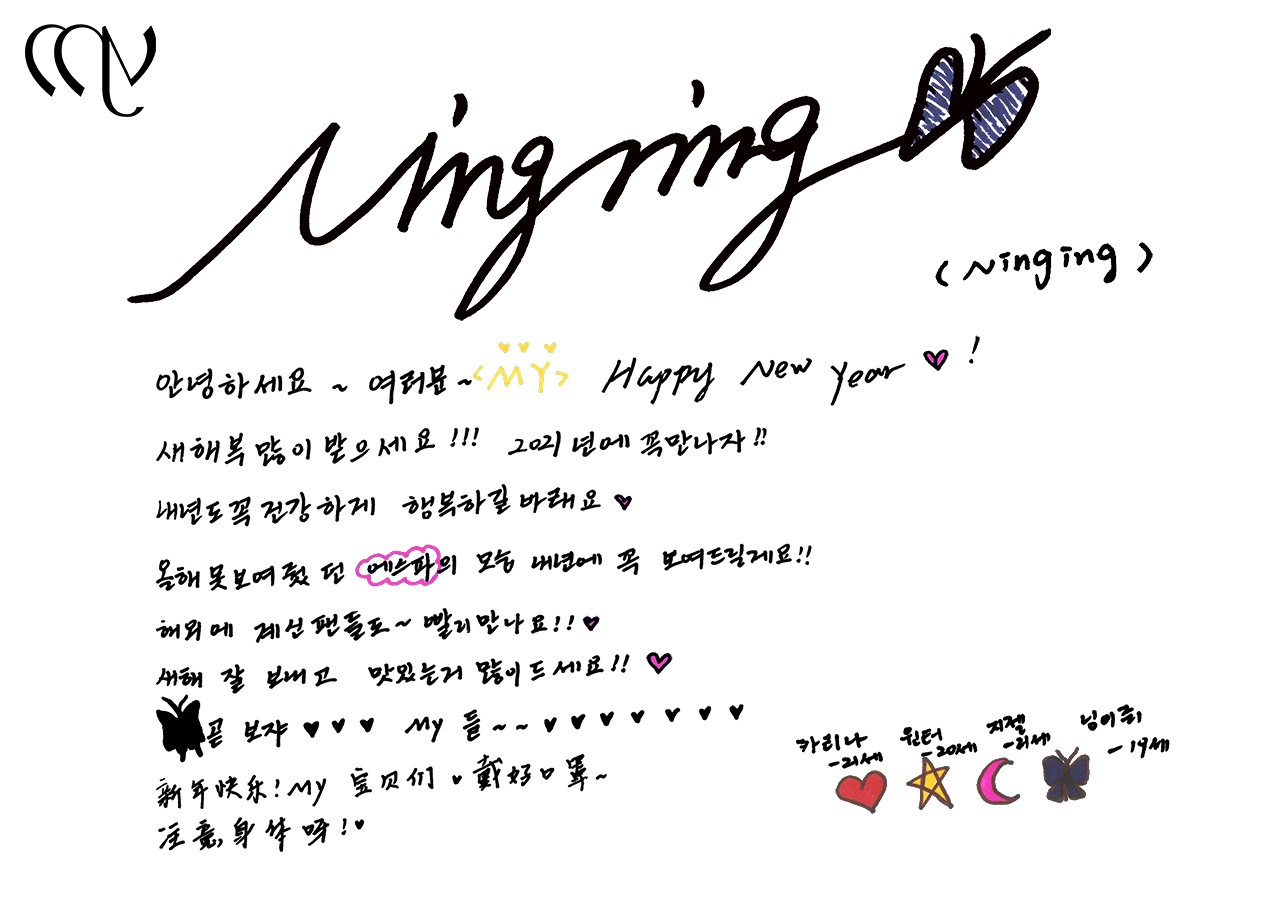 MY
Ningning
(Ninging)
안녕하세요 ~ 여러분~<MY> Happy New Year ♥!
새해복 많이 받으세요!!! 2021년에 꼭만나자!!
내년도 꼭 건강하게 행복하길 바래요♥
올해 못보여줬던 에스파의 모습 내년에 꼭 보여드릴게요!!
해외에 계신 팬들도~ 빨리만나요!!♥
새해 잘 보내고 맛있는거 많이 드세요!! ♥
곧 보쟈 ♥♥♥ My 들~~♥♥♥♥♥♥♥
新年快乐! My 宝贝们♥戴好口罩~
注意身体呀!♥
카리나 윈터 지젤 닝이쥐
-21세 -20세 -21세 -19세